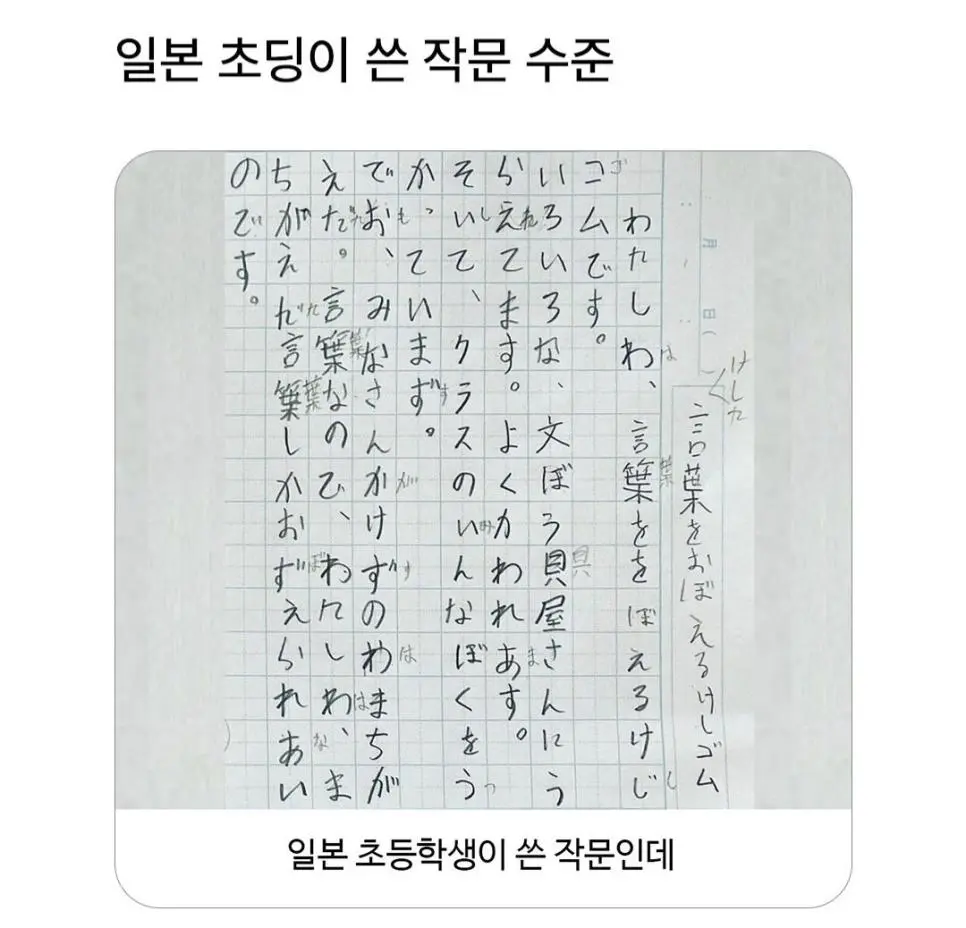 일본 초딩이 쓴 작문 수준
月 日(
言葉をおぼえるけしゴム
わたしわ、言葉ををぼえるけじ
コムです。
いろいろな、文ぼう貝屋さんにう
らえてます。よくかわれあす。
そいて、クラスのいんなぼくをう
かっていまず。
でお、みなさんかけずのわまちが
えだ。言葉なので、わたしわ、ま
ちがえだ言葉しかおずえられあい
のです。
일본 초등학생이 쓴 작문인데